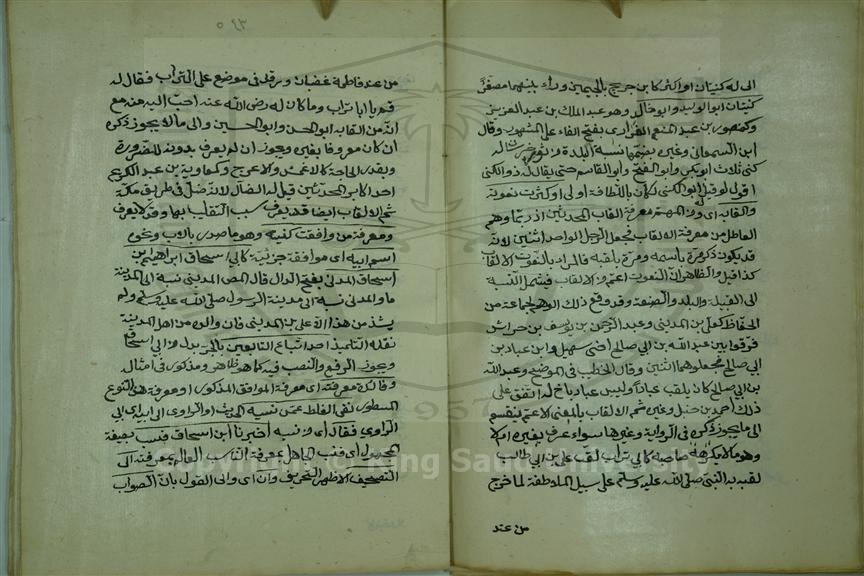 الى له كنيتان او اكثر كابن جريج بالجيمين وراء بينهما مصغرا
كنيتان ابو الوليد وابو خالد وهو عبد الملك بن عبد العزيز
وكمنصور بن عبد المنعم الفراوي بفتح الفاء على المشهور وقال
ابن السمعاني وغيره بضمها نسبة البلدة
كنى ثلاث ابو بكر وابو الفتح وابو القاسم حتى يقال له ذو الكنى
اقول لو قيل ابو الكنى لكان باللطافة اولى او كثرت نعوته
والقابه اى ومن المهم معرفة القاب المحدثين اذ ربما وهم
العاطل من معرفة الالقاب فجعل الرجل الواحد اثنين لانه
قد يكون ذكر مرة باسمه ومرة بلقبه فالمراد بالنعوت الالقاب
كذا قيل والظاهر ان النعوت اعم من الالقاب فيشمل النسبة
الى القبيلة والبلد والصنعة وقد وقع ذلك الوهم لجماعة من
الحفاظ كعلى بن المديني وعبد الرحمن بن يوسف بن خراش
فرقوا بين عبد الله بن ابي صالح اخى سهيل وابن عباد بن
ابي صالح فجعلوهما اثنين وقال الخطيب في الموضح وعبد الله
بن ابي صالح كان يلقب عبادا وليس عباد باخ له اتفق على
ذلك احمد بن حنبل وغيره ثم الالقاب بالمعنى الاعم ينقسم
الى ما يجوز ذكره في الرواية وغيرها سواء عرف بغيره ام لا
وهو ما لا يكرهه صاحبه كابي تراب لقب على بن ابي طالب
لقبه به النبي صلى الله عليه وسلم على سبيل الملاطفة لما خرج
من عند
٥٤٣
من عند فاطمة غضبان ورقد في موضع على التراب فقال له
قم يا ابا تراب وما كان له رضى الله عنه احب اليه منه مع
انه من القابه ابو الحسن وابو الحسين والى ما لا يجوز ذكره
ان كان معروفا بغيره ويجوز ان لم يعرف بدونه للضرورة
وبقدر الحاجة كالاعمش والاعرج وكمعاوية بن عبد الكريم
احد اكابر المحدثين قيل له الضال لانه ضل في طريق مكة
ثم الالقاب ايضا قد يعرف سبب التلقيب بها وقد لا يعرف
ومعرفة من وافقت كنيته وهو ما صدر بالاب ونحوه
اسم ابيه اى موافقة جزئية كابي اسحاق ابراهيم بن
اسحاق المدني بفتح الدال قال المص المديني نسبة الى المدينة
ما والمدني نسبة الى مدينة الرسول صلى الله عليه وسلم ولم
يشذ من هذا الا على بن المديني فان والده من اهل المدينة
نقله التلميذ احد اتباع التابعين بالجر بدل من ابي اسحاق
ويجوز الرفع والنصب فيه كما هو ظاهر ومذكور في امثاله
وفائدة معرفته اى معرفة الموافق المذكور او معرفة هذا النوع
المسطور نفى الغلط عمن نسبه الى ابيه
الراوي فقال اى من نسبه اخبرنا ابن اسحاق فنسب بصيغة
المجهول اى فنسب الجاهل بمعرفة الناسب العالم بمعرفته الى
التصحيف الاظهر التحريف وان اى والى القول بان الصواب
Copyright © King Saud University
1957